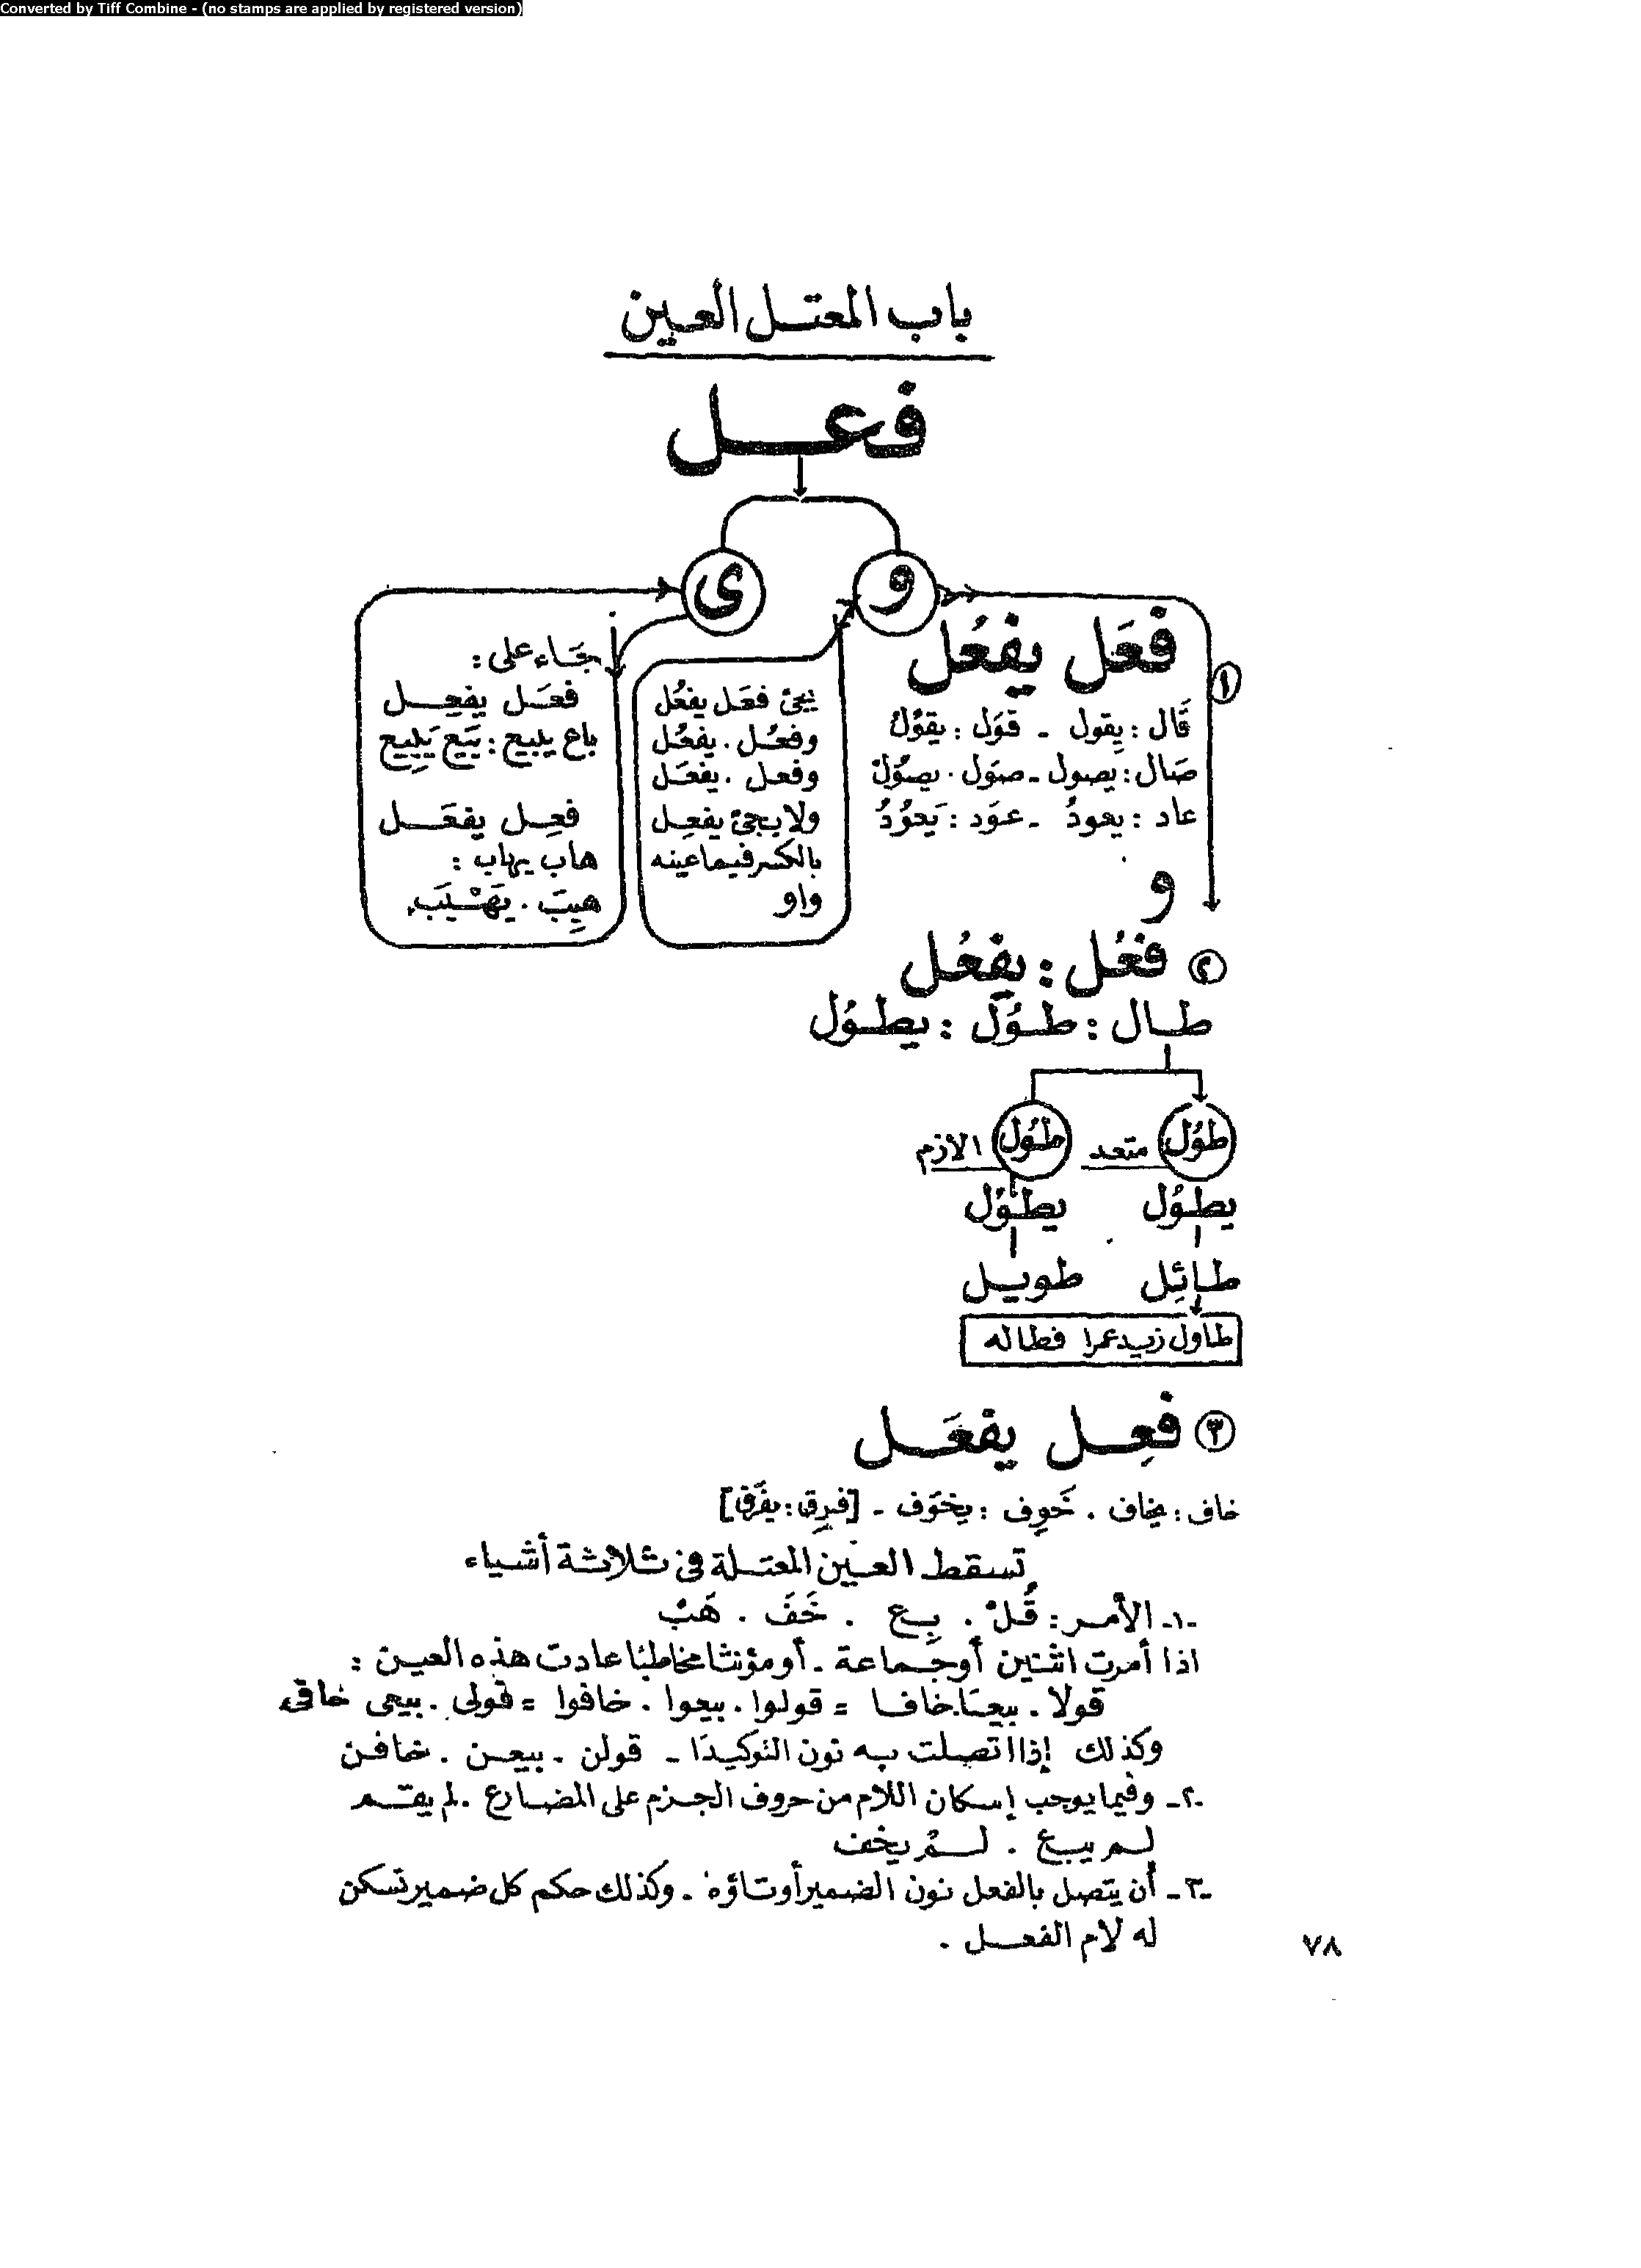 Converted by Tiff Combine - (no stamps are applied by registered version)
باب المعتل العين
فعل
و
ى
فعَل يفعُل
١
قَال : يقول - قوَل : يقوُلُ
صَال : يصول - صوَل . يصوُلْ
عاد : يعودُ - عوَد : يَعوُدُ
و
يجئ فعَل يفعُل
وفعُل . يفعُل
وفعل . يفعَل
ولا يجئ يفعِل
بالكسر فيما عينه
واو
جَاء على :
فعَل يفعِل
باع يبيع : بَيَع يَبيِع
فعِل يفعَل
هاب يهاب :
هيِبَ . يَهْيَب
٢ فعُل : يفعُل
طال : طوُلَ : يطوُل
طوُل متعد
طوُل الازم
يطوُل يطوُل
طائِل طويل
طاول زيد عمرا فطاله
٣ فعِل يفعَل
خاف : يخاف . خَوِف : يخوَف - [فرِق : يفرَق]
تسقط العين المعتلة فى ثلاثة أشياء
-١- الأمر : قُلْ . بِع . خَفَ . هَبْ
اذا أمرت اثنين أو جماعة - أو مؤنثا مخاطبا عادت هذه العين :
قولا . بيعَا . خافا = قولوا . بيعوا . خافوا = قولى . بيعى خافى
وكذلك إذا اتصلت به نون التوكيدَا - قولن . بيعن . خافن
-٢- وفيما يوجب إسكان اللام من حروف الجزم على المضارع . لم يقم
لم يبع . لمْ يخف
-٣- أن يتصل بالفعل نون الضمير أو تاؤه - وكذلك حكم كل ضمير تسكن
له لام الفعل .
٧٨